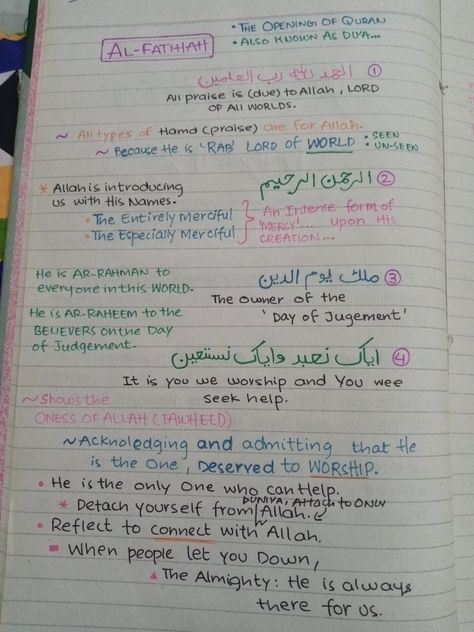 • THE OPENING OF QURAN
• ALSO KNOWN AS DU'A...
AL-FATIHAH
الحمد لله رب العلمين ①
All praise is (due) to Allah, LORD
OF All WORLDS.
~ All types of Hamd (praise) are for Allah.
~ Because He is 'RAB' LORD OF WORLD • SEEN
• UN-SEEN
* Allah is introducing
us with His Names.
• The Entirely Merciful
• The Especially Merciful
الرحمن الرحيم ②
An Intense form of
'MERCY'... upon His
CREATION...
He is AR-RAHMAN to
everyone in this WORLD.
He is AR-RAHEEM to the
BELIEVERS on the Day
of Judgement.
ملك يوم الدين ③
The owner of the
'Day of Jugement'
اياك نعبد واياك نستعين ④
It is you we worship and You wee
seek help.
~ Shows the
ONESS OF ALLAH (TAWHEED)
~ Acknoledging and admitting that He
is the One, Deserved to WORSHIP.
• He is the only One who can Help.
* Detach yourself from DUNIYA, Attach to ONLY
Allah.
• Reflect to connect with Allah.
▪ When people let you Down,
▲ The Almighty: He is always
there for us.